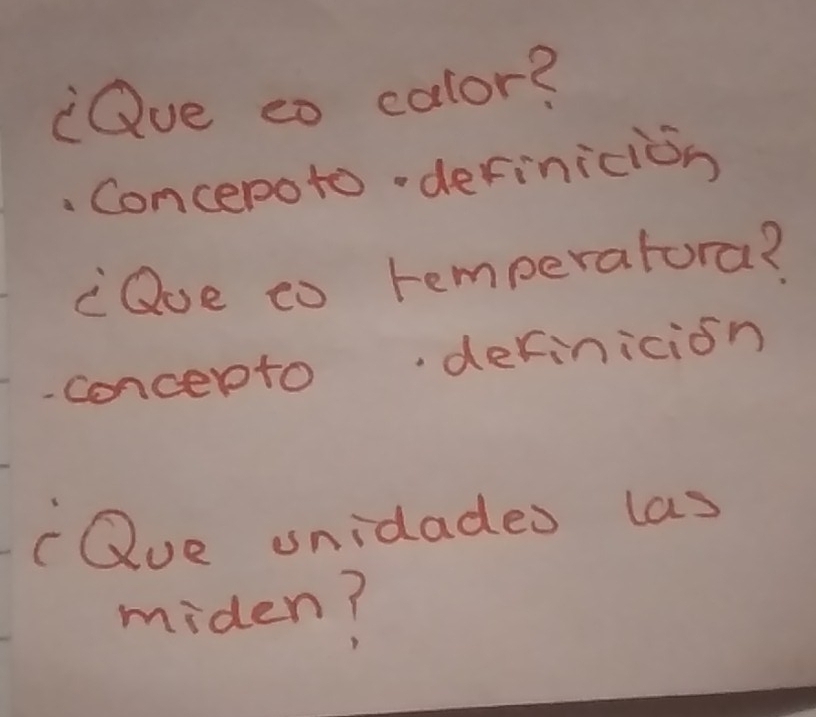 ¿Que es calor?
. Concepoto . definición
¿Que es temperatura?
. concepto . definición
¿Que unidades las
miden?